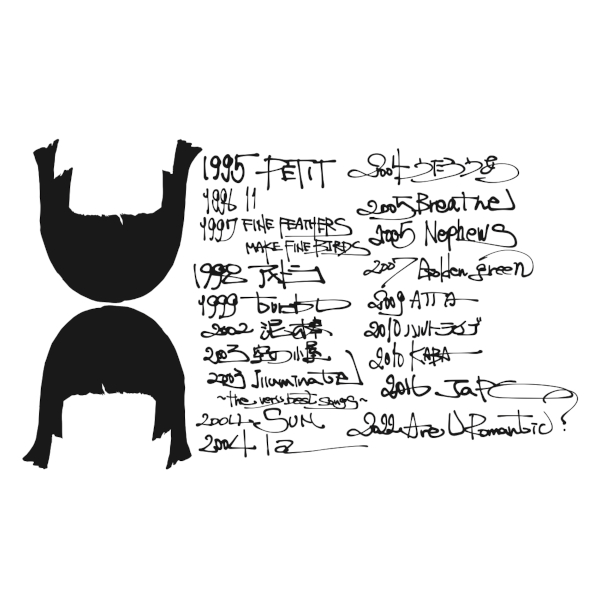 1995 PETIT
1996 11
1997 FINE FEATHERS
MAKE FINE BIRDS
1998 アメトラ
1999 turbo
2002 泥棒
2003 空の小屋
2003 Illuminate
~the very best songs~
2004 SUN
2004 la
2004 うたううあ
2005 Breathe
2005 Nephews
2007 Golden green
2009 ATTA
2010 ハルトライブ
2010 KABA
2016 JaPo
2022 Are U Romantic?